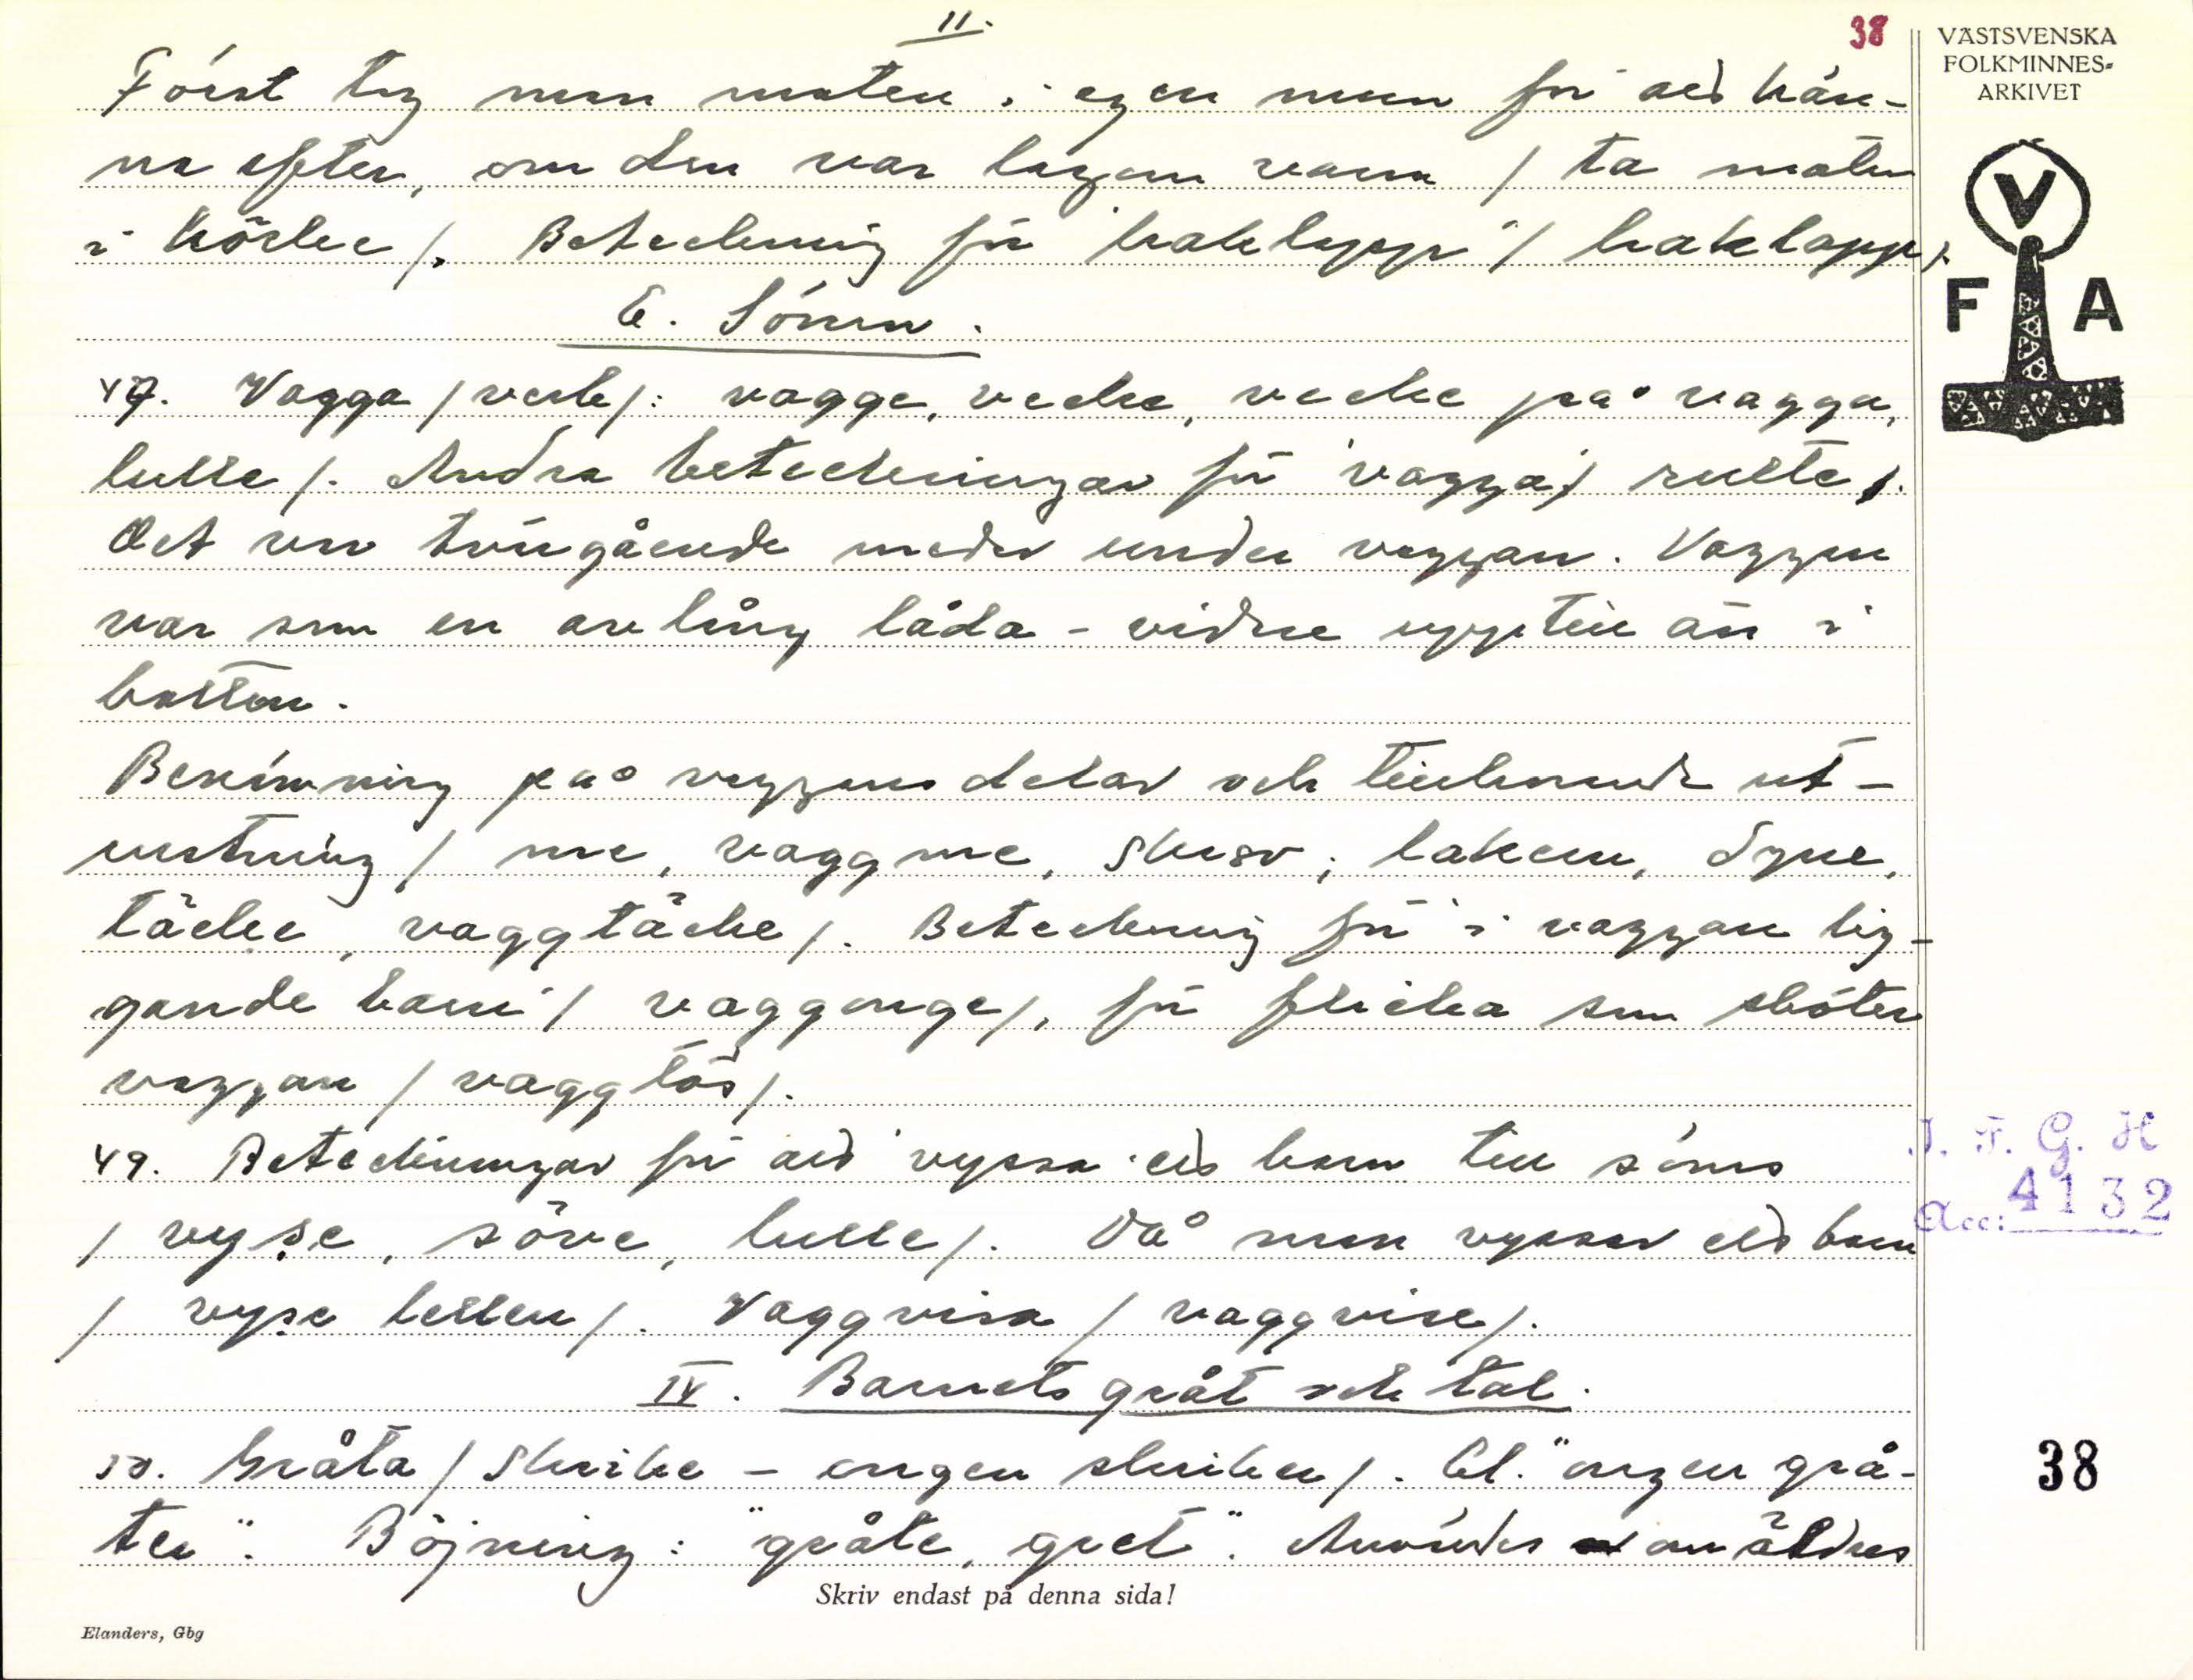 11.
38
VÄSTSVENSKA
FOLKMINNES-
ARKIVET
Först tog man maten i egen mun för att kän-
na efter, om den var lagom varm / ta maten
i /. Beteckning för "haklapp" / haklapp/.
V
F A
E. Sömn.
47. Vagga / verb/: vagge, vecke, vecke på vagga,
lulle /. Andra beteckningar för 'vagga' / rulte /.
Det var tvärgående meder under vaggan. Vaggan
var som en avlång låda - vidare upptill än i
botten.
Benämning på vaggans delar och tillhörande ut-
rustning / me, vaggme, ; laken, dyne,
täcke, vaggtäcke /. Beteckning för 'i vaggan lig-
gande barn' / vaggonge /, för flicka som sköter
vaggan / vaggtös /.
49. Beteckningar för att 'vyssa' ett barn till sömns
/ vyse, söve, lulle /. Då man vyssar ett barn
/ vyse lellen /. Vaggvisa / vaggvise /.
I. F. G. H
Acc: 4132
IV. Barnets gråt och tal.
50. Gråta / skrike - ongen skriker /. El. "ongen grå-
ter". Böjning: "gråte, gret". Användes om äldres
38
Skriv endast på denna sida!
Elanders, Gbg